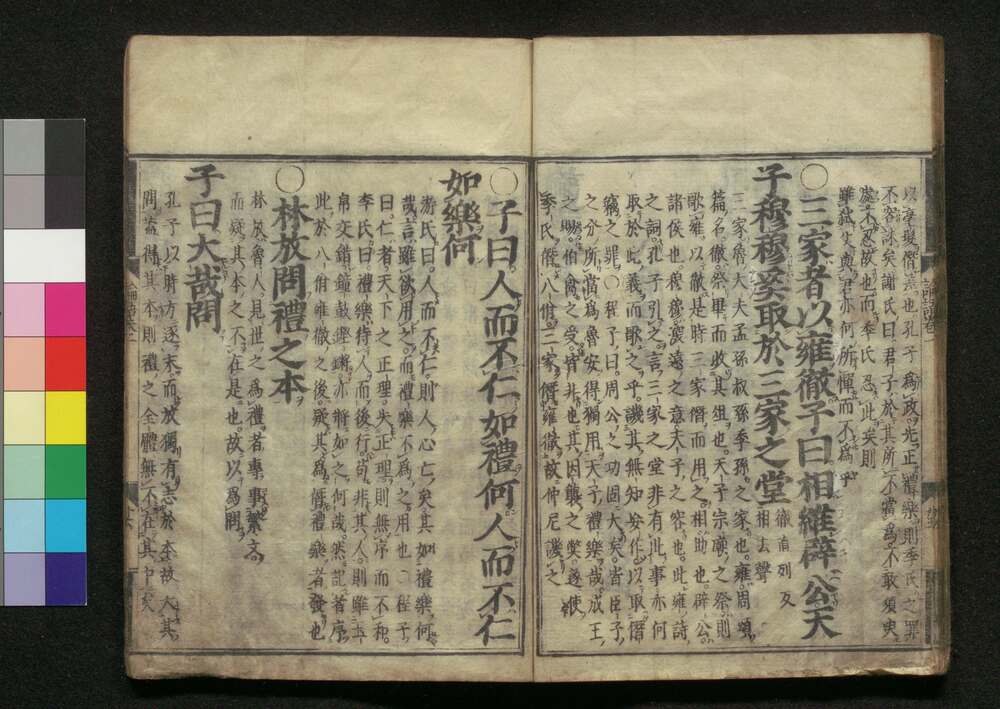 以享叟僭焉也孔子爲政先正禮樂則季氏之罪
不容誅矣謝氏曰君子於其所不當爲不敢須臾
處不忍故也而季氏忍此矣則
雖弑父與君亦何所憚而不爲乎
〇三家者以雍徹子曰相維辟公天
子穆穆奚取於三家之堂 徹直列反 相去聲
三家魯大夫孟孫叔孫季孫之家也雍周頌
篇名徹祭畢而收其俎也天子宗廟之祭則
歌雍以徹是時三家僭而用之相助也辟公
諸侯也穆穆深遠之意天子之容也此雍詩
之詞孔子引之言三家之堂非有此事亦何
取於此義而歌之乎譏其無知妄作以取僭
竊之罪〇程子曰周公之功固大矣皆臣子
之分所當爲魯安得獨用天子禮樂哉成王
之賜伯禽之受皆非也其因襲之弊遂使
季氏僭八佾三家僭雍徹故仲尼譏之
〇子曰人而不仁如禮何人而不仁
如樂何
游氏曰人而不仁則人心亡矣其如禮樂何
哉言雖欲用之而禮樂不爲之用也〇程子
曰仁者天下之正理失正理則無序而不和
李氏曰禮樂待人而後行苟非其人則雖玉
帛交錯鐘鼓鏗鏘亦將如之何哉然記者序
此於八佾雍徹之後疑其爲僭禮樂者發也
〇林放問禮之本
林放魯人見世之爲禮者專事繁文
而疑其本之不在是也故以爲問
子曰大哉問
孔子以時方逐末而放獨有志於本故大其
問蓋得其本則禮之全體無不在其中矣